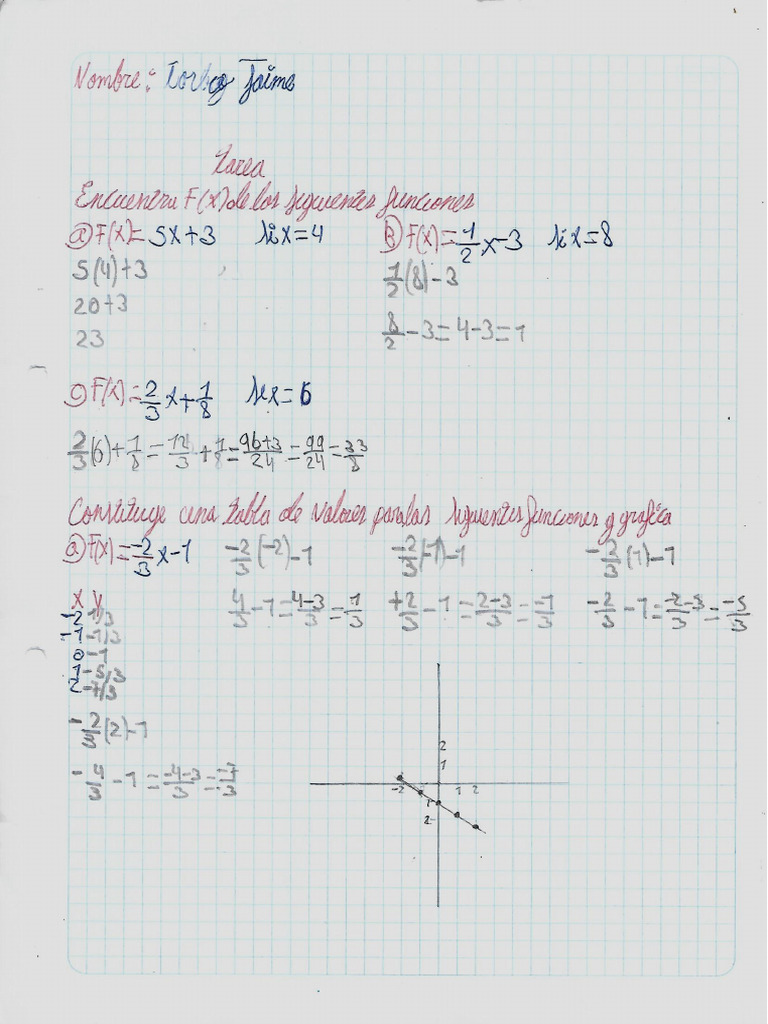 Nombre: Jaime
tarea
Encuentra F(x) de los siguientes funciones
a) F(x) = 5x+3 si x=4
5(4)+3
20+3
23
b) F(x) = 1/2 x-3 si x=8
1/2 (8) - 3
8/2 - 3 = 4-3 = 1
c) F(x) = 2/3 x + 1/8 si x = 6
2/3 (6) + 1/8 = 12/3 + 1/8 = 96+3/24 = 99/24 = 33/8
Constituye una tabla de valores para las siguientes funciones y grafica
a) F(x) = -2/3 x-1
-2/3 (-2) -1
4/3 - 1 = 4-3/3 = 1/3
-2/3 (-1) -1
+2/3 - 1 = 2-3/3 = -1/3
-2/3 (1) -1
-2/3 - 1 = -2-3/3 = -5/3
x y
-2 1/3
-1 -1/3
0 -1
1 -5/3
2 -7/3
-2/3 (2) -1
-4/3 - 1 = -4-3/3 = -7/3
2
1
-2 1 2
1
2